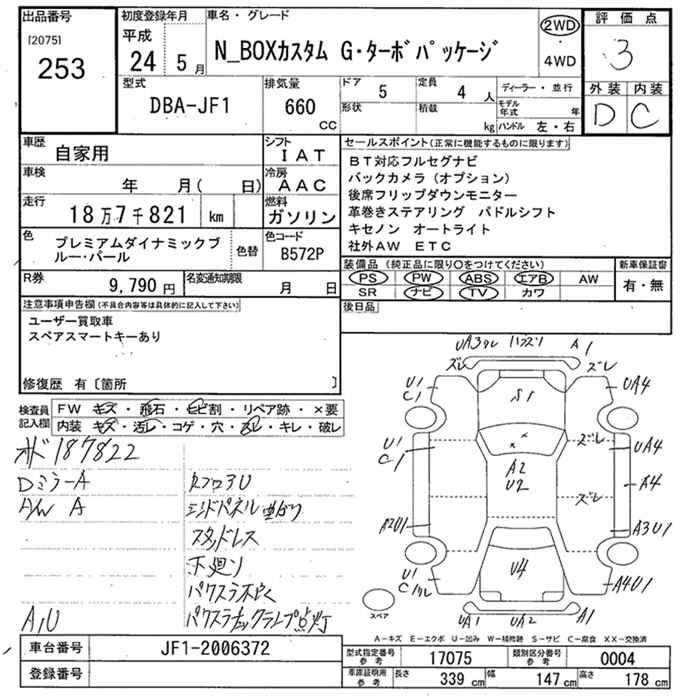 出品番号 初度登録年月 車名・グレード 2WD 評価点
[2075] 平成 N_BOXカスタム G・ターボパッケージ ・ 3
253 24 5月 4WD
型式 排気量 ドア 5 定員 4人 ディーラー・並行 外装 内装
DBA-JF1 660 CC 形状 積載 kg モデル年式 年 D C
ハンドル 左・右
車歴 自家用 シフト IAT セールスポイント(正常に機能するものに限ります)
車検 年 月( 日) 冷房 AAC BT対応フルセグナビ
バックカメラ(オプション)
走行 18万7千821 km 燃料 ガソリン 後席フリップダウンモニター
革巻きステアリング パドルシフト
色 プレミアムダイナミックブルー・パール 色替 色コード B572P キセノン オートライト
社外AW ETC
R券 9,790円 名変通知期限 月 日 装備品(純正品に限り○をつけてください) 新車保証書
PS PW ABS エアB AW 有・無
SR ナビ TV カワ
注意事項申告欄(不具合内容等は具体的に記入して下さい) 後日品
ユーザー買取車
スペアスマートキーあり
修復歴 有〔箇所 〕
検査員記入欄 FW キズ・飛石・ヒビ割・リペア跡・×要
内装 キズ・汚レ・コゲ・穴・スレ・キレ・破レ
187822
DミラーA
AW A
エンドパネル曲がり
スタッドレス
下廻り
A,U
UA3 A1
ズレ ズレ
U1 S1 UA4
C1
U1 ズレ UA4
C1 A2 A4
U2 ズレ
A2U1 A3U1
U1 U4 A4U1
C1
スペア UA1 UA2 A1
A-キズ E-エクボ U-凹み W-補修跡 S-サビ C-腐食 XX-交換済
車台番号 JF1-2006372 型式指定番号 参考 17075 類別区分番号 参考 0004
登録番号 車庫証明用 参考 長さ 339 cm 幅 147 cm 高さ 178 cm